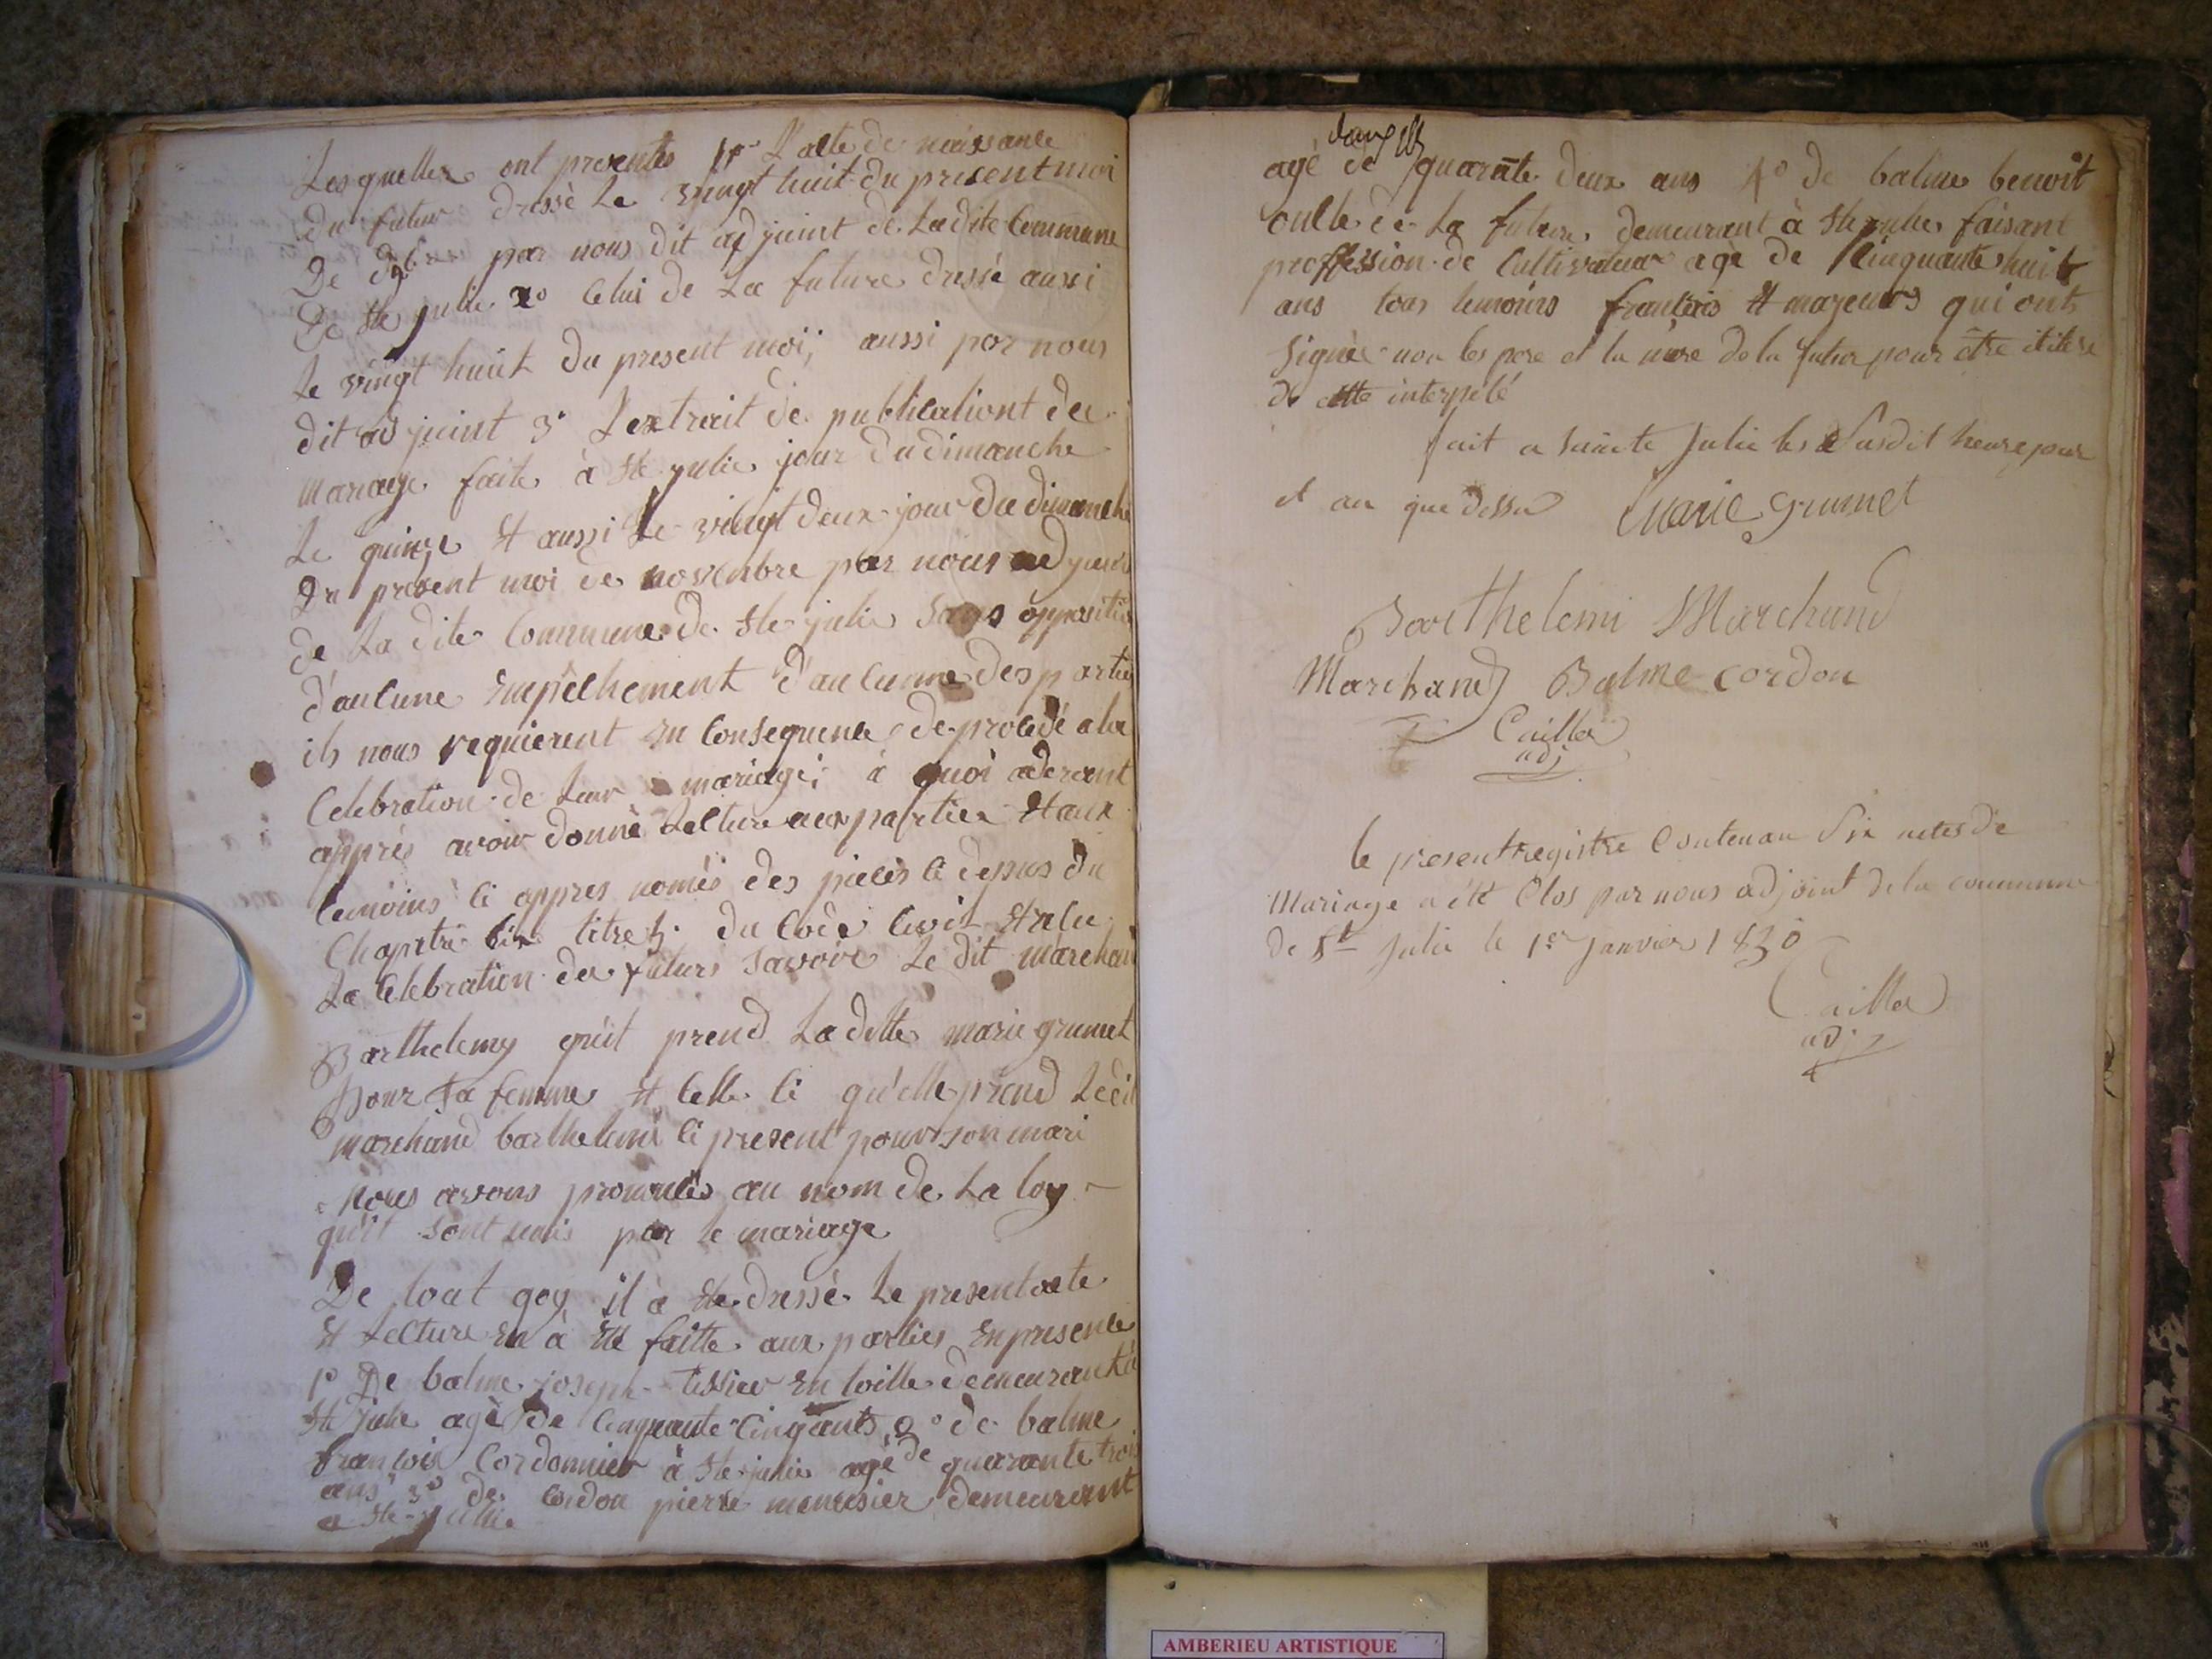 Lesquelles ont presentés 1o L'acte de naissance
du futur dressé Le vingt huit du present moi
De 9bre par nous dit adjoint de Ladite Commune
De Ste julie 2o Celui de La future dressé aussi
Le vingt huit du present moi; aussi par nous
dit adjoint 3o L'extrait de publications de
mariage faite à Ste julie jour du dimanche
Le quinze Et aussi Le vingt deux jour du dimanche
Du present moi de novenbre par nous adjoint
de La dite Commune de Ste julie sans opposition
d'aucune Empêchement d'aucunne des partie
ils nous requierent En Consequence de procedé a la
Celebration de Leur mariage; à quoi aderant
apprés avoir donné Lecture aux parties Et aux
temoins ci appres només des pieces ci dessus du
Chapitre six titre 5. du Code Civil Et a la
La Celebration des futurs savoire Le dit marchand
Barthelemy qu'il prend La ditte marie grumet
pour sa femme Et Celle ci qu'elle prend Ledit
marchand barthelemi ci present pour son mari
Nous avons prononcés au nom de La loy
qu'il sont unis par le mariage
De tout qoy il à Ete dressé Le present acte
Et Lecture En à Eté faitte aux parties En presence
1o De balme joseph tissier En toille demeurant à
Ste julie agé de Cinquante Cinq ants 2o de balme
francois Cordonnier à Ste julie agé de quarante trois
ans 3o de Cordon pierre menusier demeurant
a Ste julie
agé de quarante deux ans 4o de balme benoit
oncle de La future demeurant à Ste julie faisant
proffession de Cultivateur agé de Cinquante huit
ans tous temoins francais Et majeurs qui ont
Signés non les pere et la mere de la futur pour être illitere
de cette interpelé
fait a Sainte Julie les Susdit heure jour
et an que dessu Marie Grumet
Barthelemi Marchand
Marchand Balme Cordon
Caillet
adj
le present registre Contenan Six actes de
Mariage a été Clos par nous adjoint de la commune
de Ste Julie le 1er Janvier 1830
Caillet
adj
AMBERIEU ARTISTIQUE